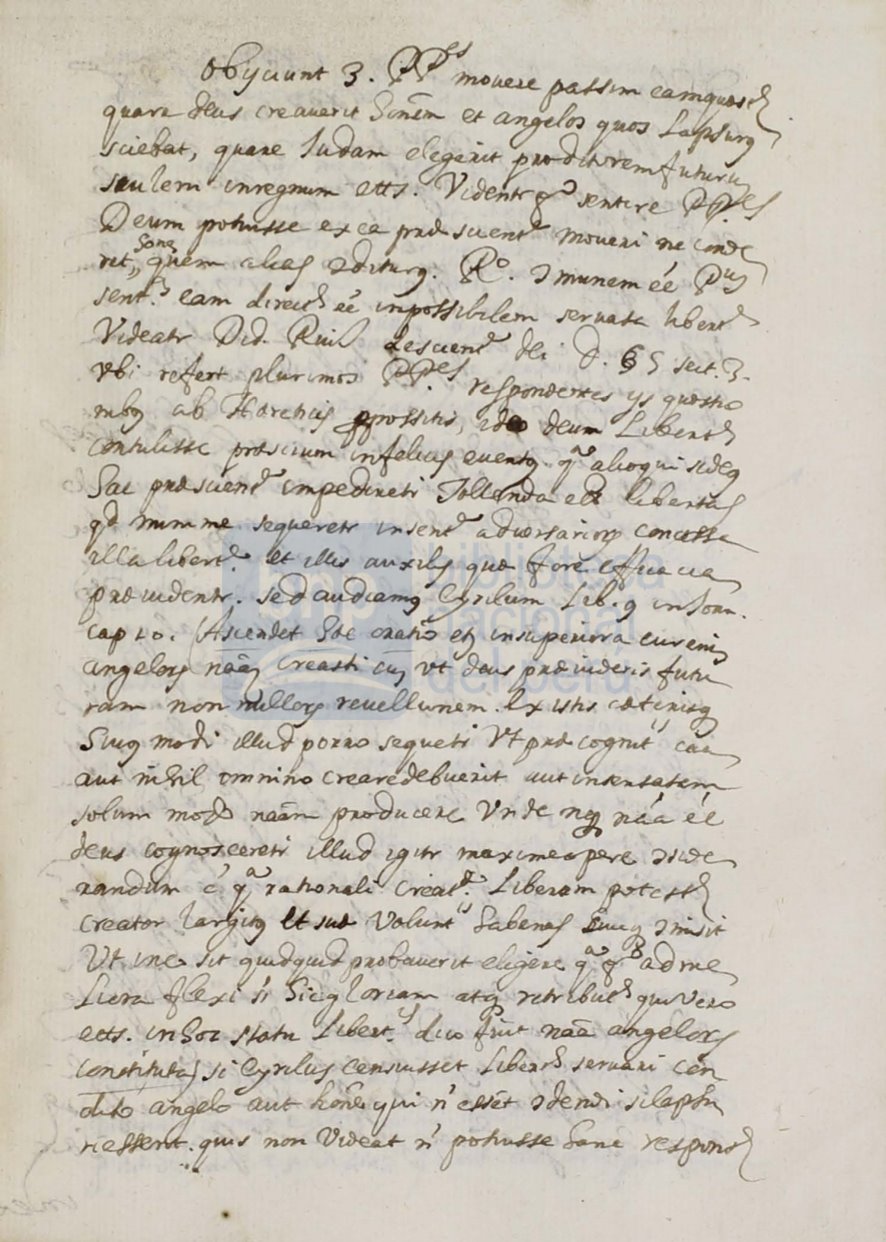 Obijciunt 3. PP.es movere passim eam quaes
quare deus creaverit hoñem et angelos quos Lapsurus
sciebat, quare Iudam elegerit proditorem futuru
saulem in regnum etts. Videntr sentire PP.es
Deum potuisse ex ea praescient movери ne conde
ret, hoñe quem alias
sent. eam direct eé inpossibilem servata libert
Videatr Did. Ruis de scient dei D. 65 sect. 3.
vbi refert plurimos PP.es respondentes ijs quaestio
nibus ab Hereticis prossitis, ideo deum Libert
contulisse praescium infelicis eventus. qa alioqui si deus
hac praescient impedireti Tollenda eét libertas
qd minime sequeretr in sent adversariorum concessa
illa libert. et illis auxilijs quae fore efficacia
praevidentr. sed audiamus Cyrilum Lib. 9 in Ioan.
cap 10. (Ascendet hoc oratio et in superiora cur enim
angelorum naãm creasti cum vt deus praevideris futu
ram non nullorum revellionem. Ex istis caeterisq
huius modi illud porro sequeti Vt praecognit
aut nihil omnino creare debuerit aut insensatam
solum modo naãm producere Vnde neq náa eé
deus cognosceretr illud igitr maximeopere conside
randum é qa rationali creat. Liberam potest
creator largitus Et suae Volunt habenas
Vt in eo sit quidquid probaverit eligere qa ad me
Liora flexi sí hic gloriam atq retribut qui vero
etts. in hoc statu Libert. dico fuit naãa angelorum
constituta) si Cyrilus censuisset Libert servari con
dito angelo aut hoñe qui ñ essét condendi si lapsu
ri essent. quis non Videat ñ potuisse hanc respons